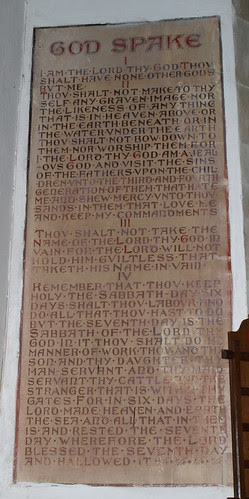 GOD SPAKE
I
I·AM·THE·LORD·THY·GOD·THOU
SHALT·HAVE·NONE·OTHER·GODS
BVT·ME·
THOV·SHALT·NOT·MAKE·TO·THY
SELF·ANY·GRAVEN·IMAGE·NOR
THE·LIKENESS·OF·ANY·THING
THAT·IS·IN·HEAVEN·ABOVE·OR
IN·THE·EARTH·BENEATH·OR·IN
THE·WATER·VNDER·THE·EARTH
THOV·SHALT·NOT·BOW·DOWN·TO
THEM·NOR·WORSHIP·THEM·FOR
I·THE·LORD·THY·GOD·AM·A·JEAL
OVS·GOD·AND·VISIT·THE·SINS
OF·THE·FATHERS·VPON·THE·CHIL
DREN·VNTO·THE·THIRD·AND·FOVRTH
GENERATION·OF·THEM·THAT·HATE
ME·AND·SHEW·MERCY·VNTO·THOV
SANDS·IN·THEM·THAT·LOVE·ME
AND·KEEP·MY·COMMANDMENTS
III
THOV·SHALT·NOT·TAKE·THE
NAME·OF·THE·LORD·THY·GOD·IN
VAIN·FOR·THE·LORD·WILL·NOT
HOLD·HIM·GVILTLESS·THAT
TAKETH·HIS·NAME·IN·VAIN
IV
REMEMBER·THAT·THOV·KEEP
HOLY·THE·SABBATH·DAY·SIX
DAYS·SHALT·THOV·LABOVR·AND
DO·ALL·THAT·THOV·HAST·TO·DO
BVT·THE·SEVENTH·DAY·IS·THE
SABBATH·OF·THE·LORD·THY
GOD·IN·IT·THOV·SHALT·DO·NO
MANNER·OF·WORK·THOV·AND·THY
SON·AND·THY·DAVGHTER·THY
MAN·SERVANT·AND·THY·MAID
SERVANT·THY·CATTLE·AND·THE
STRANGER·THAT·IS·WITHIN·THY
GATES·FOR·IN·SIX·DAYS·THE
LORD·MADE·HEAVEN·AND·EARTH
THE·SEA·AND·ALL·THAT·IN·THEM
IS·AND·RESTED·THE·SEVENTH
DAY·WHEREFORE·THE·LORD
BLESSED·THE·SEVENTH·DAY
AND·HALLOWED·IT